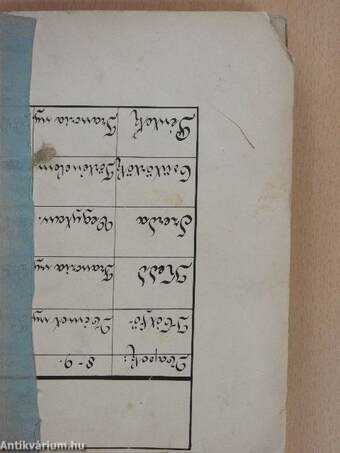 Napok: 8-9.
Hétfő. Német ny
Kedd Francia ny
Szerda Vegytan.
Csütörtök Történelem
Péntek Francia ny
Antikvárium.hu